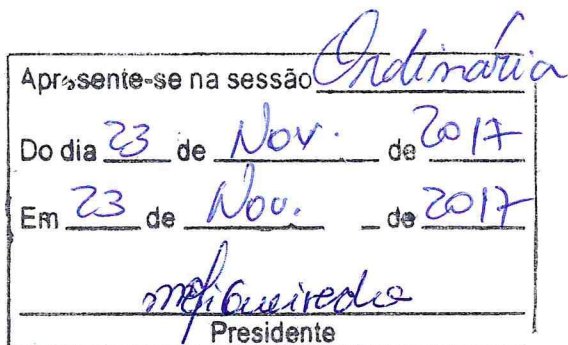 Apresente-se na sessão Ordinária
Do dia 23 de Nov. de 2017
Em 23 de Nov. de 2017
Presidente